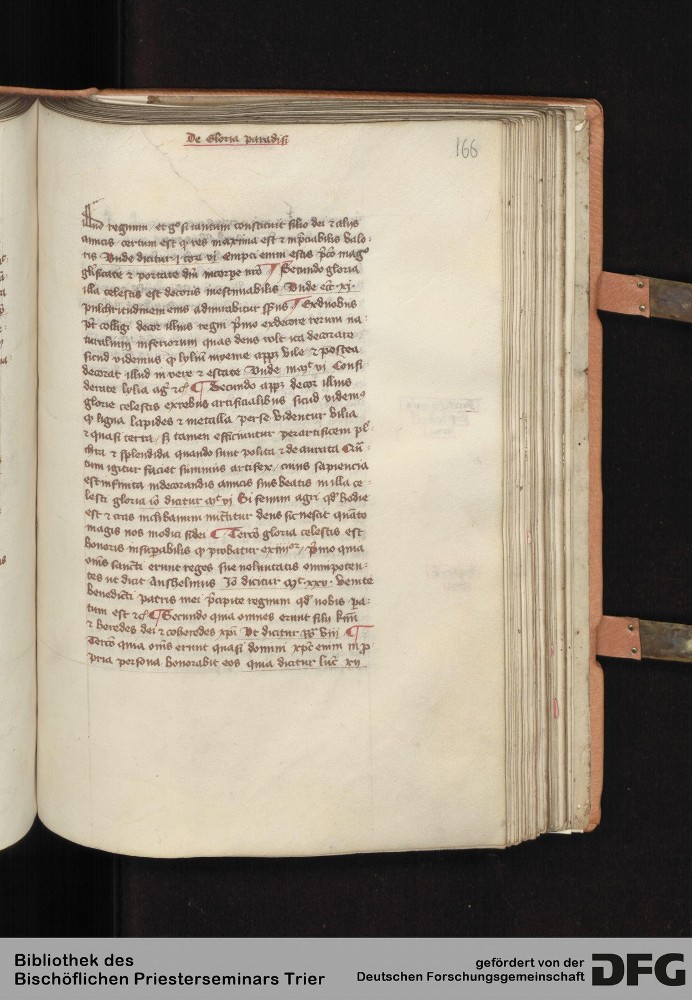 De Gloria paradisi
166
illud regnum et gº si tantum constituit filio dei et aliis
amicis certum est q res maxima est et inp̄ciabilis valo-
ris Unde dicitur i cor vi Empti enim estis p̄cō mag
glificate et portate dm̄ in corpe nrō ¶ Secundo gloria
illa celestis est decoris inestimabilis Unde ecc xi
pulchritudinem eius admirabitur Ex duobus
pt colligi decor illius regni p̄mo ex decore rerum na-
turalium inferiorum quas deus vult ita decorare
sicud videmus q lylium inveme appꝫ vile et postea
decorat illud in vere et estate Unde mat vi Consi-
derate lylia ag etc ¶ Secundo appꝫ decor illius
glorie celestis ex rebus artificialibus sicud videmꝰ
q ligna lapides et metalla per se videntur vilia
et quasi terra si tamen efficiuntur per artificem pl-
chra et splendida quando sunt polita et deaurata Qn̄-
tum igitur faciet summus artifex cuius sapiencia
est infinita in decorandis amicis suis beatis in illa ce-
lesti gloria iō dicitur mt vi Si fenum agri qd hodie
est et cras in clibanum mittitur deus sic vestit quāto
magis vos modici fidei ¶ Tercō gloria celestis est
honoris insupabilis q probatur ex p̄mo quia
om̄s sancti erunt reges sue voluntatis omnipoten-
tes ut dicit Anshelmus Iō dicitur mt xxv Venite
benedicti patris mei p̄cipite regnum qd vobis pa-
tum est etc ¶ Secundo quia omnes erunt filii
et heredes dei et coheredes xpi Ut dicitur Ro viii ¶
Tercō quia om̄s erunt quasi domini xpc enim in p
pria persona honorabit eos quia dicitur luc xii
Bibliothek des
Bischöflichen Priesterseminars Trier
gefördert von der
Deutschen Forschungsgemeinschaft
DFG